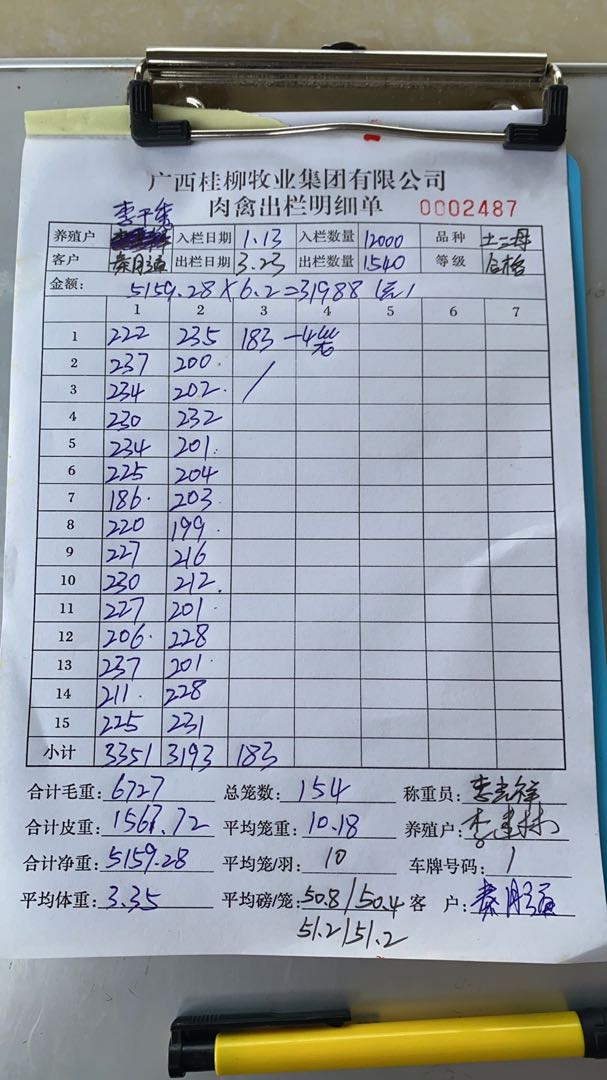 广西桂柳牧业集团有限公司
肉禽出栏明细单 0002487
养殖户 入栏日期 1.13 入栏数量 12000 品种 土二母
客户 秦月强 出栏日期 3.23 出栏数量 1540 等级 合格
金额: 5159.28×6.2=31988(元)
1 2 3 4 5 6 7
1 222 235 183 -4笼
2 237 200
3 234 202
4 230 232
5 234 201
6 225 204
7 186 203
8 220 199
9 227 216
10 230 212
11 227 201
12 206 228
13 237 201
14 211 228
15 225 231
小计 3351 3193 183
合计毛重: 6727 总笼数: 154 称重员:
合计皮重: 1567.72 平均笼重: 10.18 养殖户:
合计净重: 5159.28 平均笼/羽: 10 车牌号码: 1
平均体重: 3.35 平均磅/笼: 50.8/50.4 客户: 秦月强
51.2/51.2